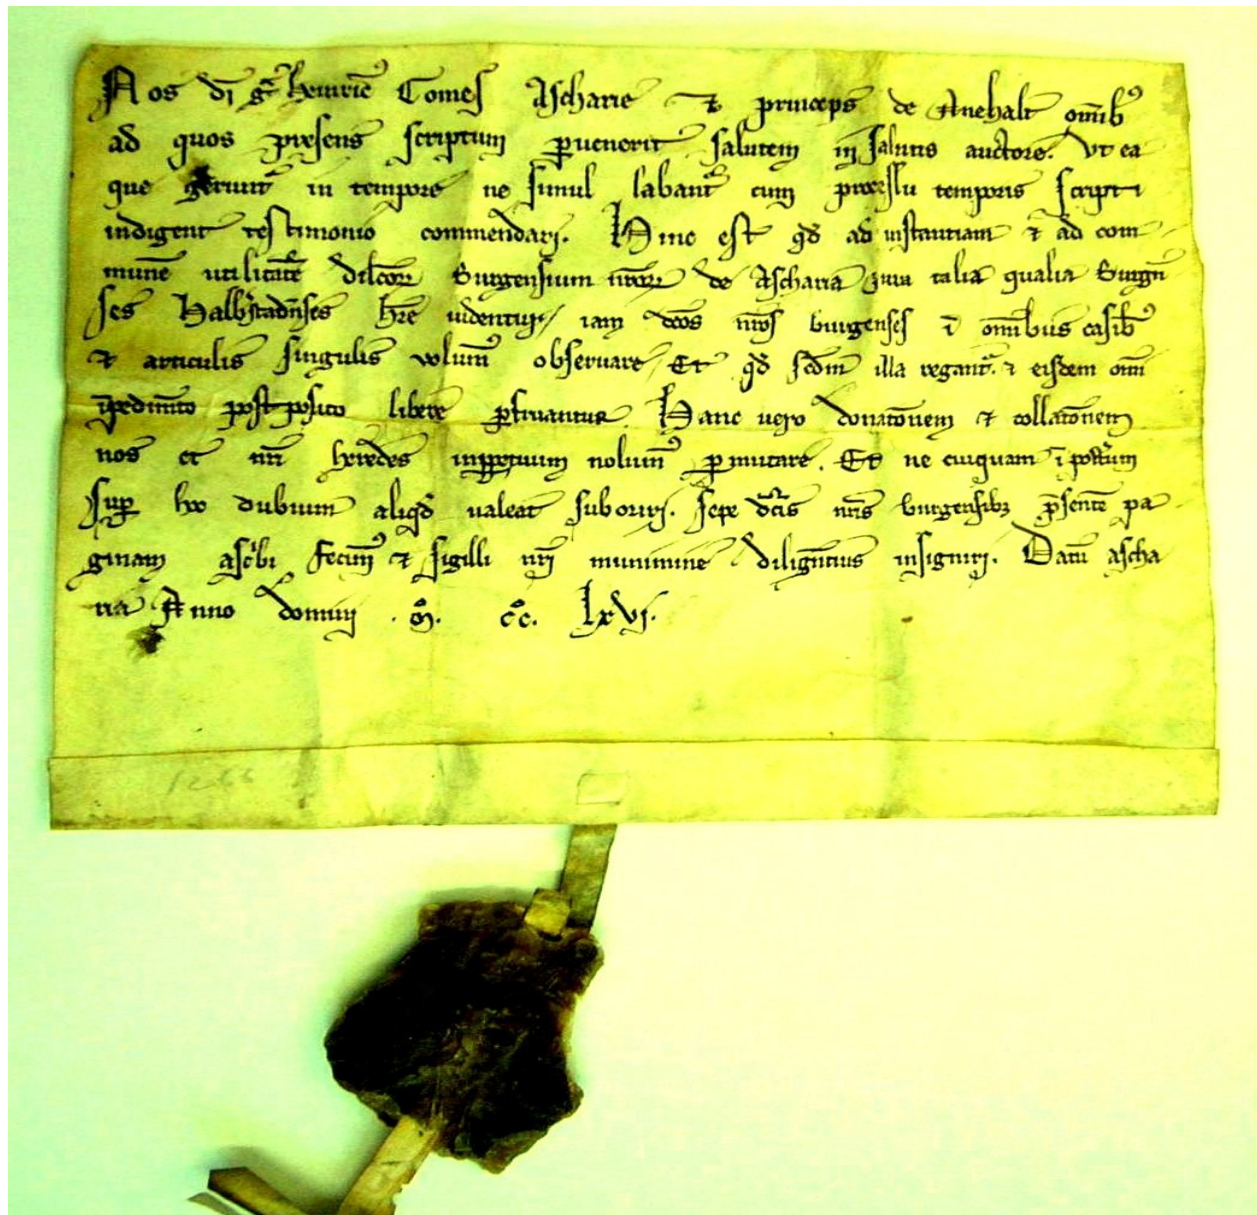 Nos dī gr̄a heinric̄ Comes Ascharie et princeps de Anehalt omnib9
ad quos presens scriptum ꝑuenerit salutem in salutis auctore. Vt ea
que gerunt᷑ in tempore ne simul labant᷑ cum processu temporis scripti
indigent testimonio commendari. Hinc est qd̄ ad instantiam et ad com
munē utilitatē dilc̄oꝝ Burgensium nr̄oꝝ de Ascharia iura talia qualia Burgn̄
ses Halb̄stadn̄ses hr̄e uidentur, iam dc̄os nr̄os burgenses ī omnibus casib9
et articulis singulis volum9 obseruare, Et qd̄ scd̄m illa regant᷑. et eisdem omī
īpedimēto postposito libere ꝑfruantur. Hanc uero donatōnem et collatōnem
nos et nr̄i heredes inꝑpetuum nolum9 ꝑmutare. Et ne cuiquam ī posteꝝum
suꝑ hoc dubium aliqd̄ ualeat suboriri. sepe dc̄is nr̄is burgensibꝫ p̄sentē pa
ginam asc̄bi fecim9 et sigilli nr̄i munimine diligentius insigniri. Datū ascha
ria Anno domini .mº. cºc. lxvi.
1266